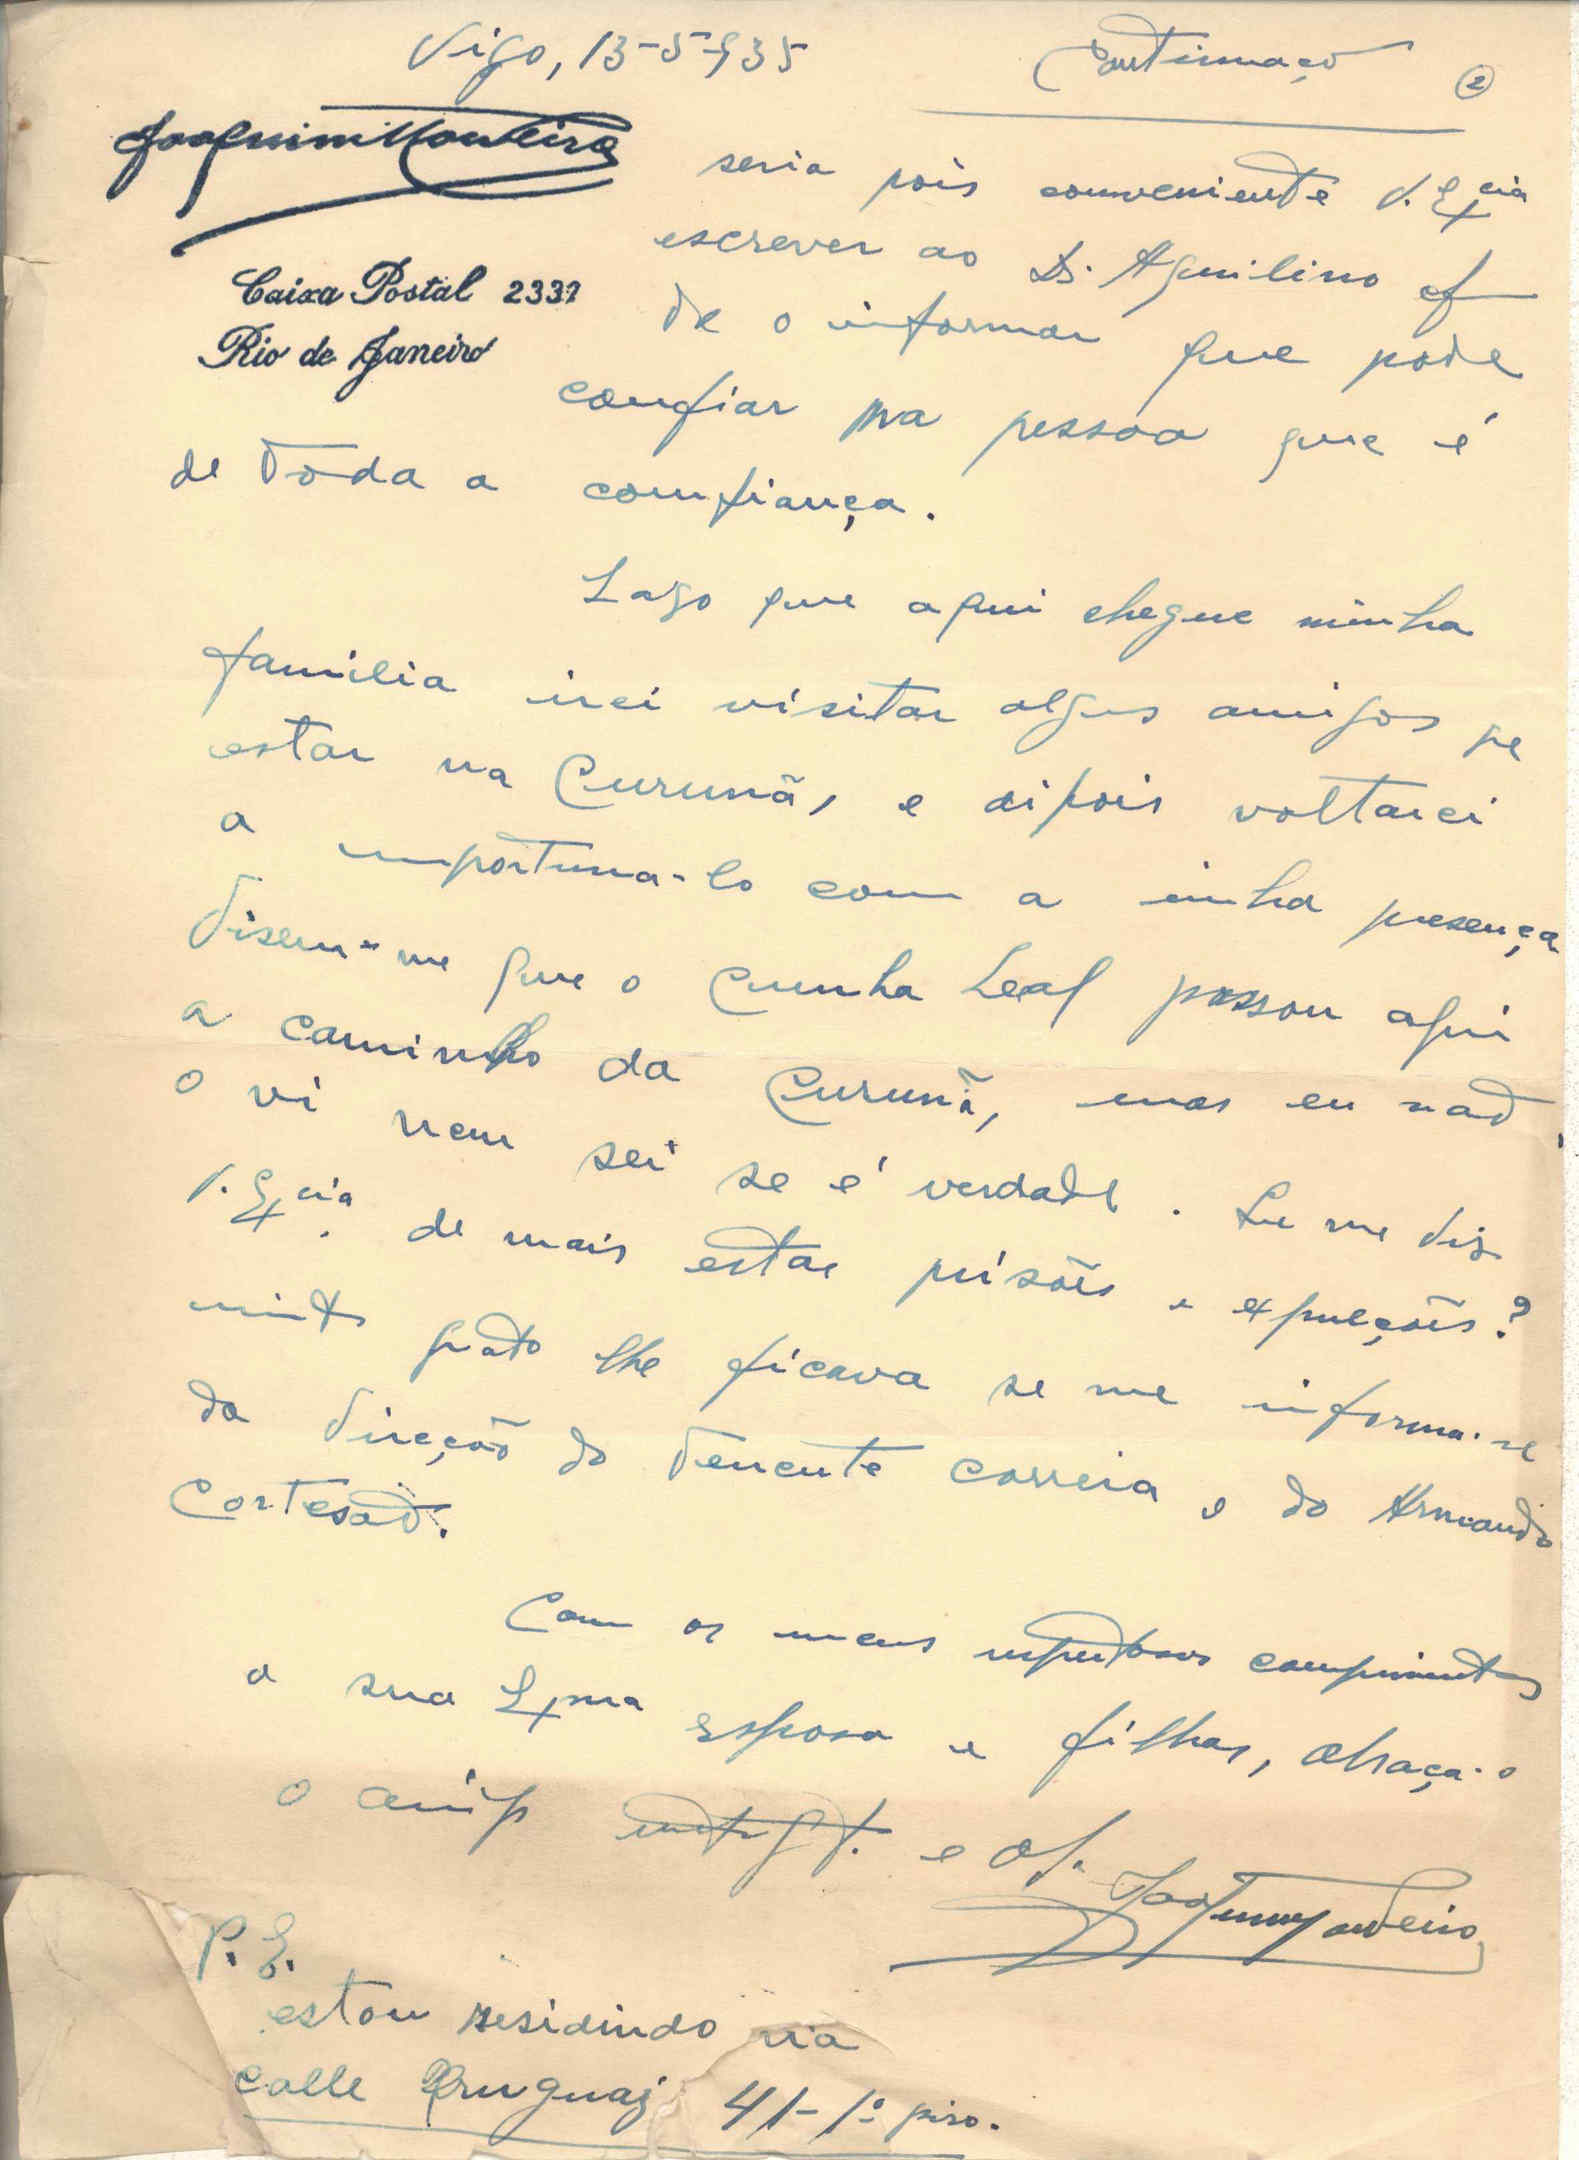 Vigo, 13-5-935
Continuação
2
Joaquim Monteiro
Caixa Postal 2331
Rio de Janeiro
seria pois conveniente V. Excia
escrever ao Dr. Aquilino af
de o informar que pode
confiar na pessoa que é
de toda a comfiança.
Logo que aqui chegue minha
familia irei visitar algus amigos qe
estar na Curunã, e dipois voltarei
a importuna-lo com a inha presença
Disem-me que o Cunha Leal passou aqui
a caminho da Curunã, mas eu naõ
o vi nem sei se é verdade. Que me diz
V. Excia. de mais estas prisões e expulções?
muito grato lhe ficava se me informa-se
da direcção do tenente Correia e do Armando
Cortesaõ.
Com os meus respeitosos comprimentos
a sua Exma Esposa e filhas, abraça-o
o amigo e
Joaquim Monteiro
P. S.
estou residindo na
calle Uruguaj 41-1º piso.